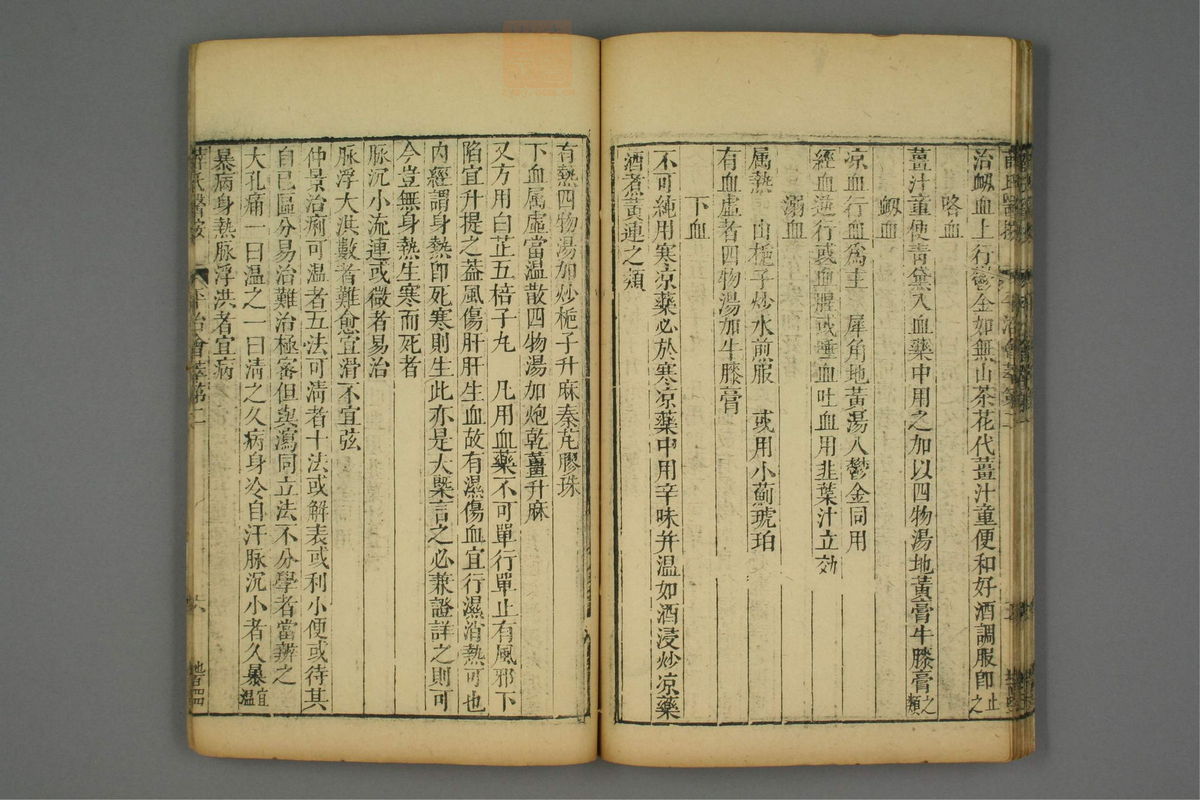 治衂血上行鬱金如無山茶花代薑汁童便和好酒調服即止之
咯血
薑汁童便青黛入血藥中用之加以四物湯地黃膏牛膝膏之類
衂血
凉血行血爲主 犀角地黃湯入鬱金同用
經血逆行或血腥或唾血吐血用韭葉汁立効
溺血
属熱 山梔子炒水煎服 或用小薊琥珀
有血虛者四物湯加牛膝膏
下血
不可純用寒凉藥必於寒凉藥中用辛味并温如酒浸炒凉藥
酒煮黃連之類
有熱四物湯加炒梔子升麻秦艽膠珠
下血属虛當温散四物湯加炮乾薑升麻
又方用白芷五棓子丸 凡用血藥不可單行單止有風邪下
陷宜升提之蓋風傷肝肝生血故有濕傷血宜行濕消熱可也
内經謂身熱即死寒則生此亦是大槩言之必兼證詳之則可
今豈無身熱生寒而死者
脉沉小流連或微者易治
脉浮大洪數者難愈宜滑不宜弦
仲景治痢可温者五法可清者十法或解表或利小便或待其
自已區分易治難治極審但與瀉同立法不分學者當辨之
大孔痛一曰温之一曰清之久病身冷自汗脉沉小者久暴宜温
暴病身熱脉浮洪者宜病
薛氏醫按 平治會萃第二 六